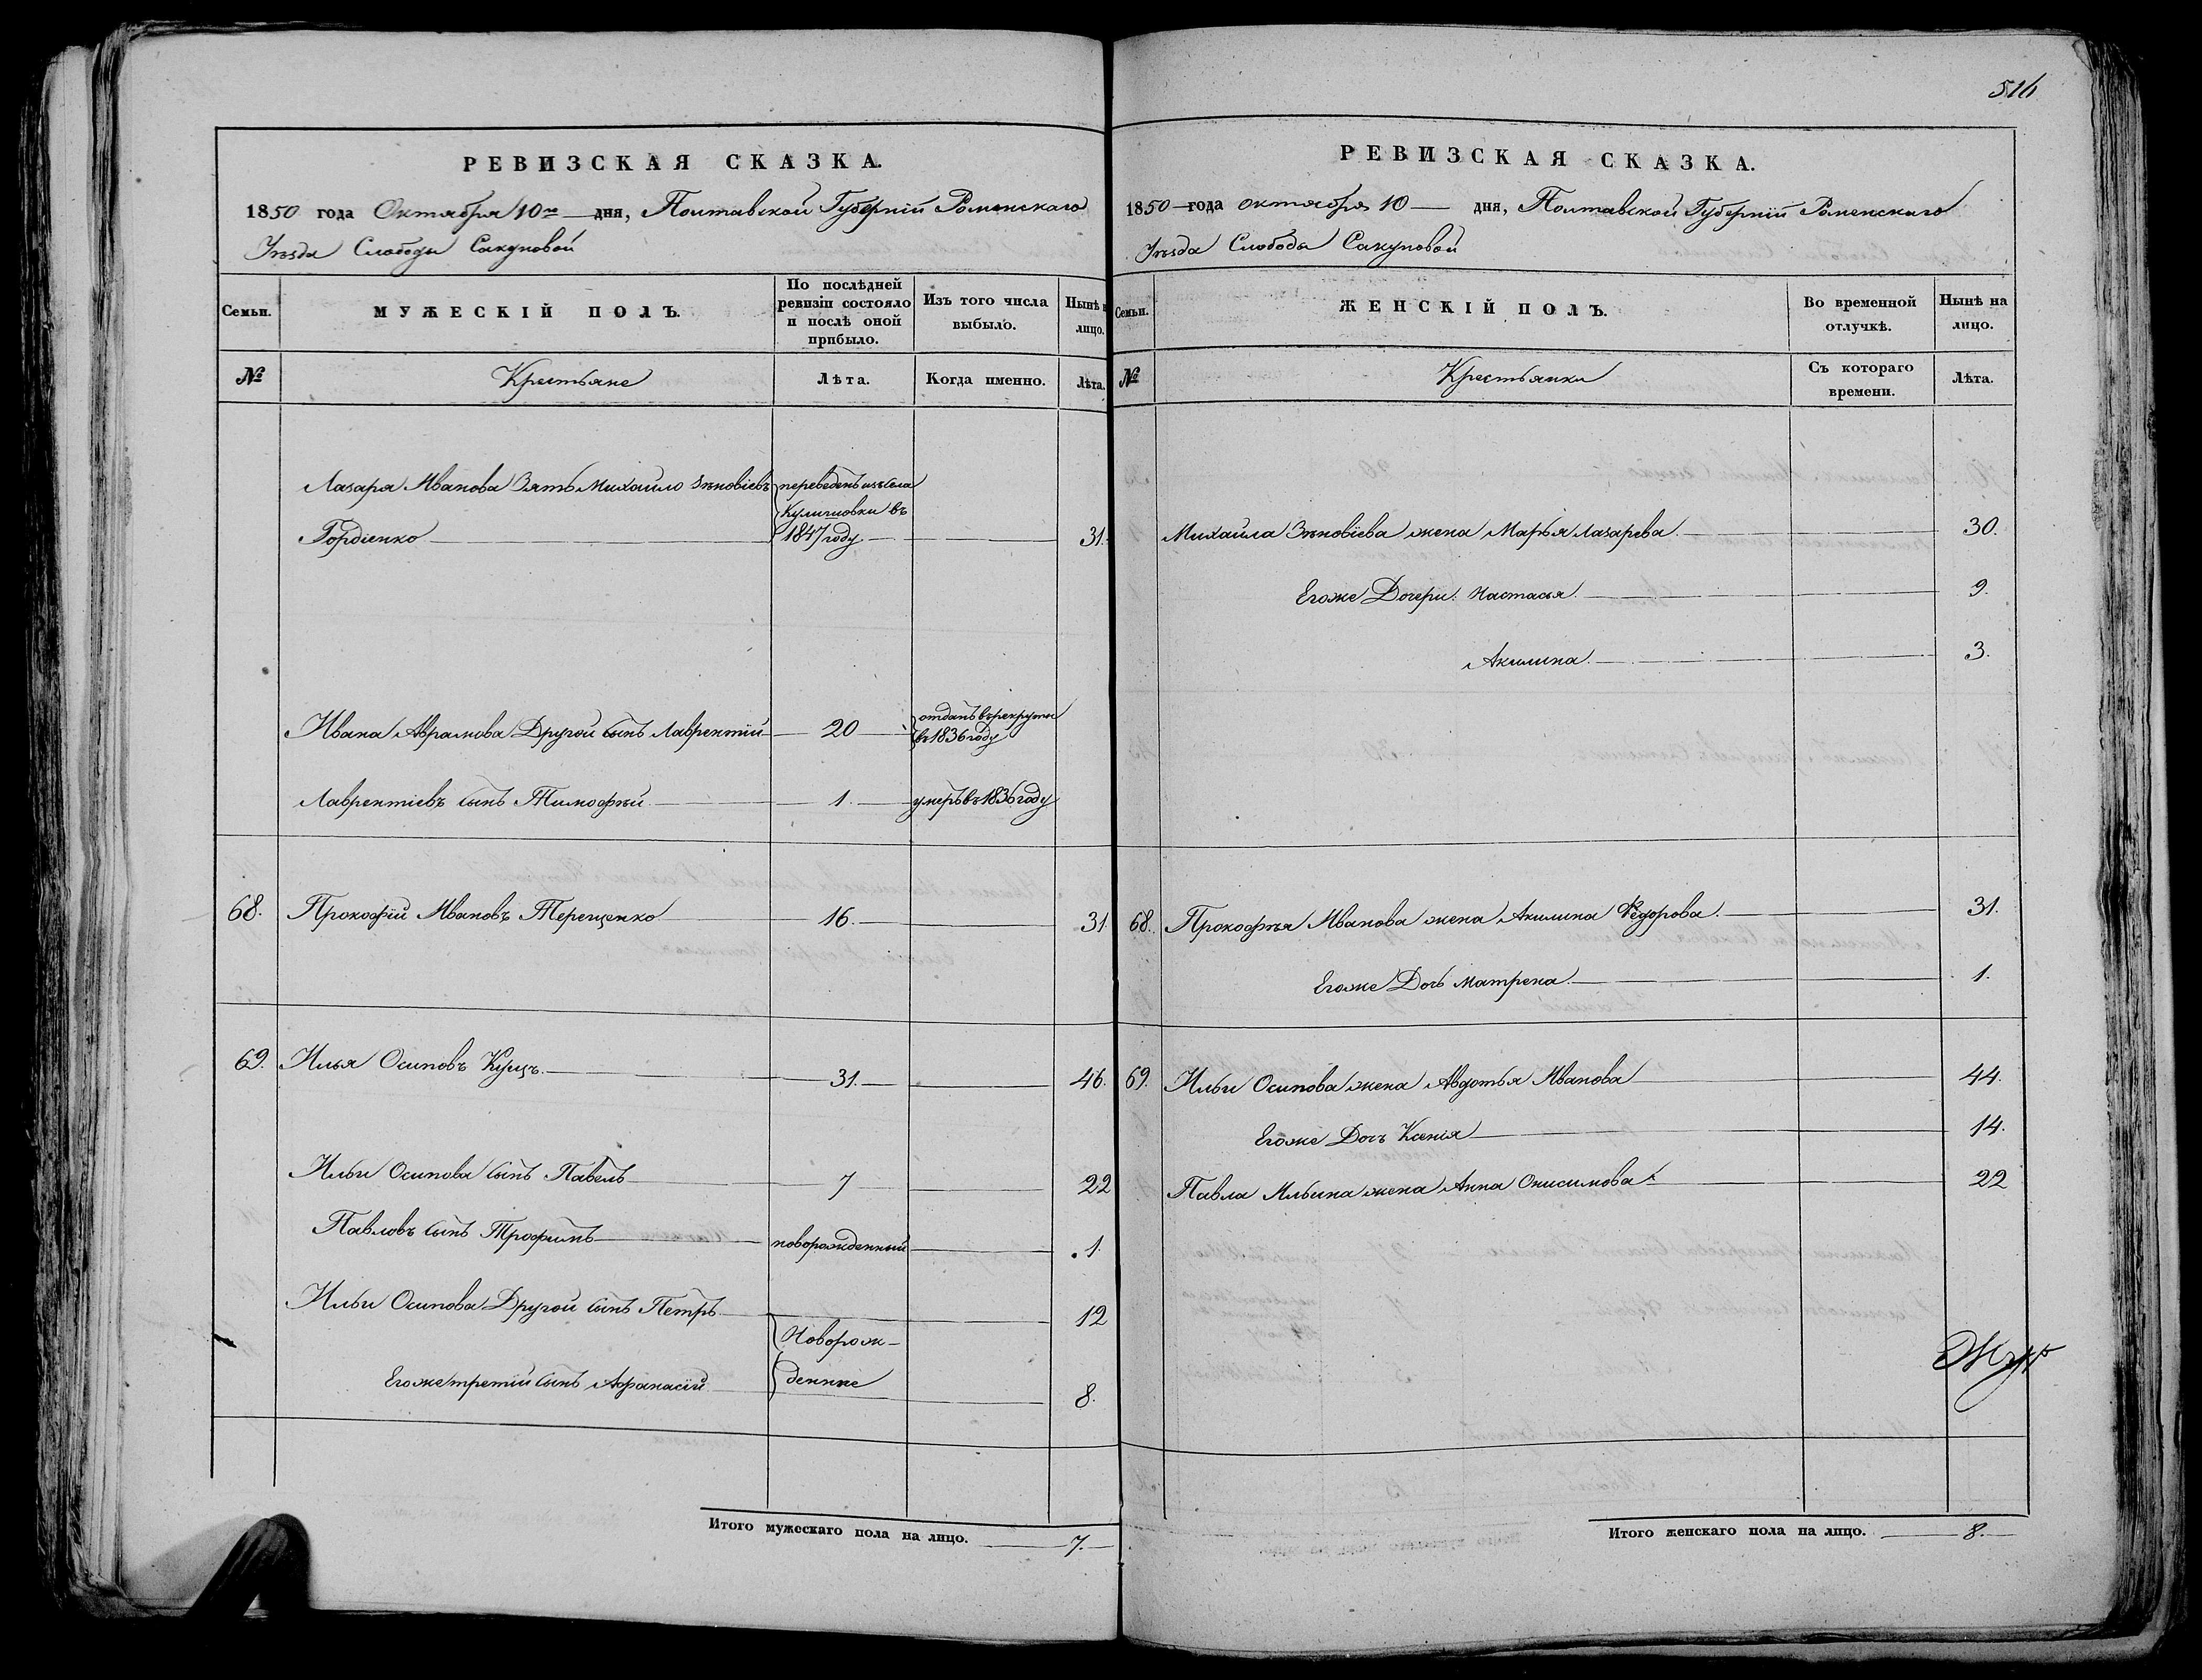 РЕВИЗСКАЯ СКАЗКА.
1850 года Октября 10го дня, Полтавской Губернiи Роменскаго
Уѣзда Слободы Сакуновой
Семьи.
МУЖЕСКІЙ ПОЛЪ.
По послѣдней
ревизіи состояло
и послѣ оной
прибыло.
Изъ того числа
выбыло.
Нынѣ н
лицо.
№
Крестьяне
Лѣта.
Когда именно.
Лѣта.
Лазаря Иванова Зять Михайло Зѣновіевъ переведенъ изъ села
Кулишовки въ
Гордіенко 1847 году. 31.
Ивана Аврамова Другой сынъ Лаврентій 20 отданъ въ рекруты
въ 1836 году
Лаврентіевъ сынъ Тимофѣй 1. умеръ въ 1836 году
68. Прокофій Ивановъ Терещенко 16. 31.
69. Илья Осиповъ Куцъ. 31. 46.
Ильи Осипова сынъ Павелъ 7 22
Павловъ сынъ Трофимъ новорожденный 1.
Ильи Осипова Другой сынъ Петръ 12
Новорож-
Егоже третій сынъ Афанасій денные 8.
Итого мужескаго пола на лицо. 7.
516
РЕВИЗСКАЯ СКАЗКА.
1850 года октября 10 дня, Полтавской Губернiи Роменскаго
Уѣзда Слободы Сакуновой
Семьи.
ЖЕНСКІЙ ПОЛЪ.
Во временной
отлучкѣ.
Нынѣ на
лицо.
№
Крестьянки
Съ котораго
времени.
Лѣта.
Михайла Зѣновіева жена Марья Лазарева. 30.
Егоже Дочери: Настасья. 9.
Акилина. 3.
68. Прокофья Иванова жена Акилина Федорова. 31.
Егоже Дочь Матрена. 1.
69. Ильи Осипова жена Авдотья Иванова 44.
Егоже Дочъ Ксенія 14.
Павла Ильина жена Анна Онисимова 22
Итого женскаго пола на лицо. 8.